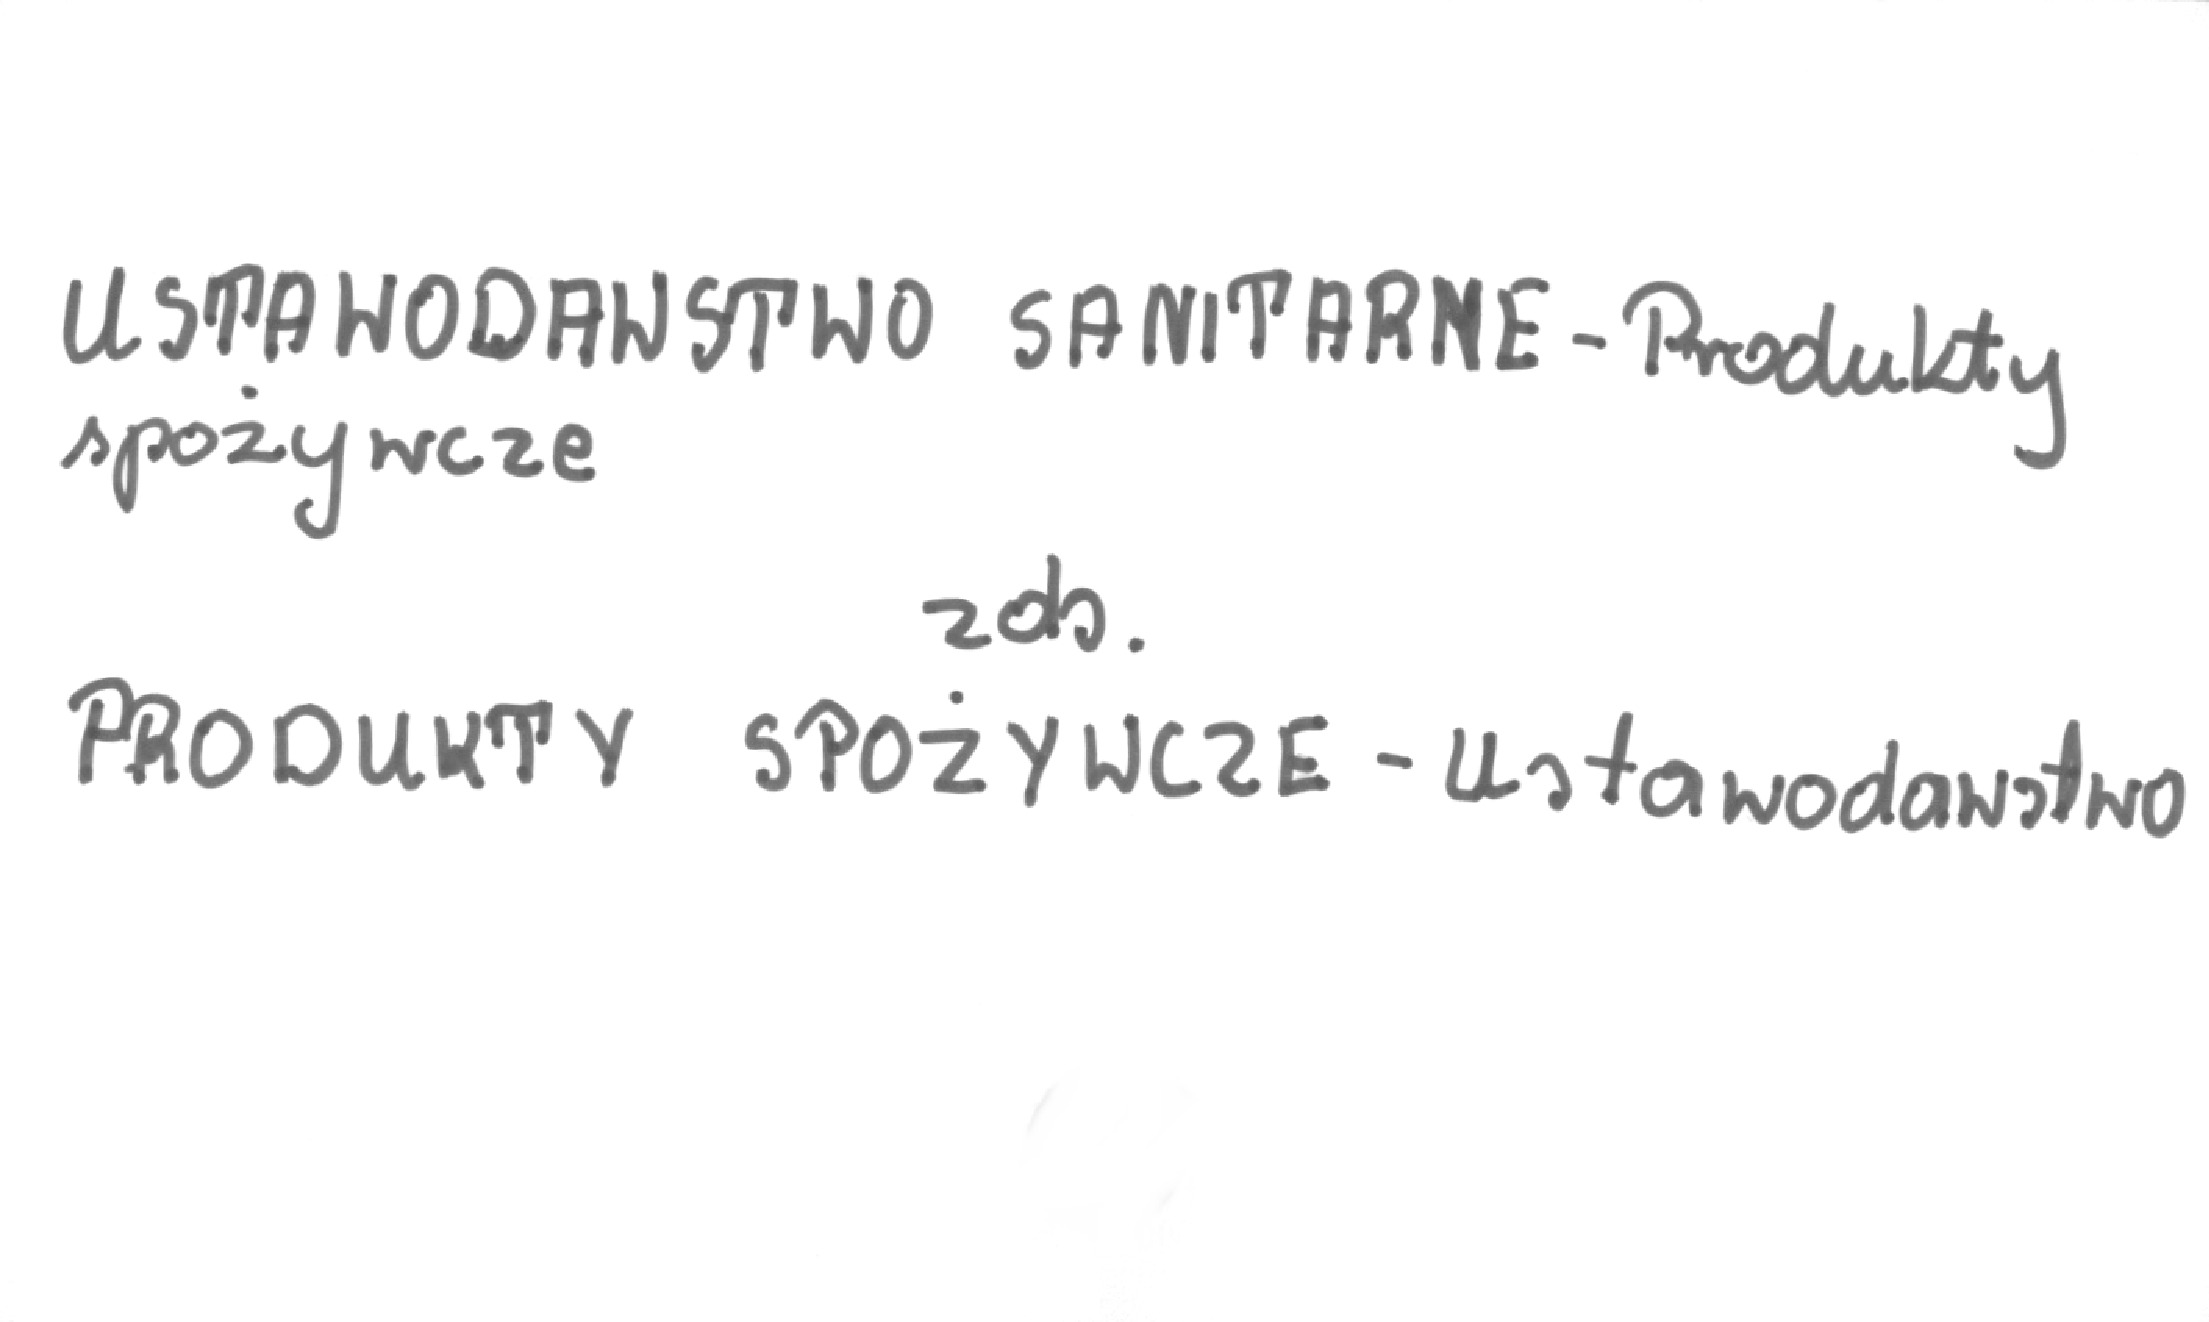 USTAWODAWSTWO SANITARNE - Produkty
spożywcze
zob.
PRODUKTY SPOŻYWCZE - Ustawodawstwo